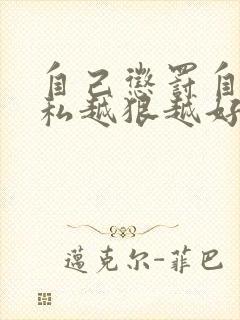 自己懲罰自
私越狠越好
邁克尔-菲巴